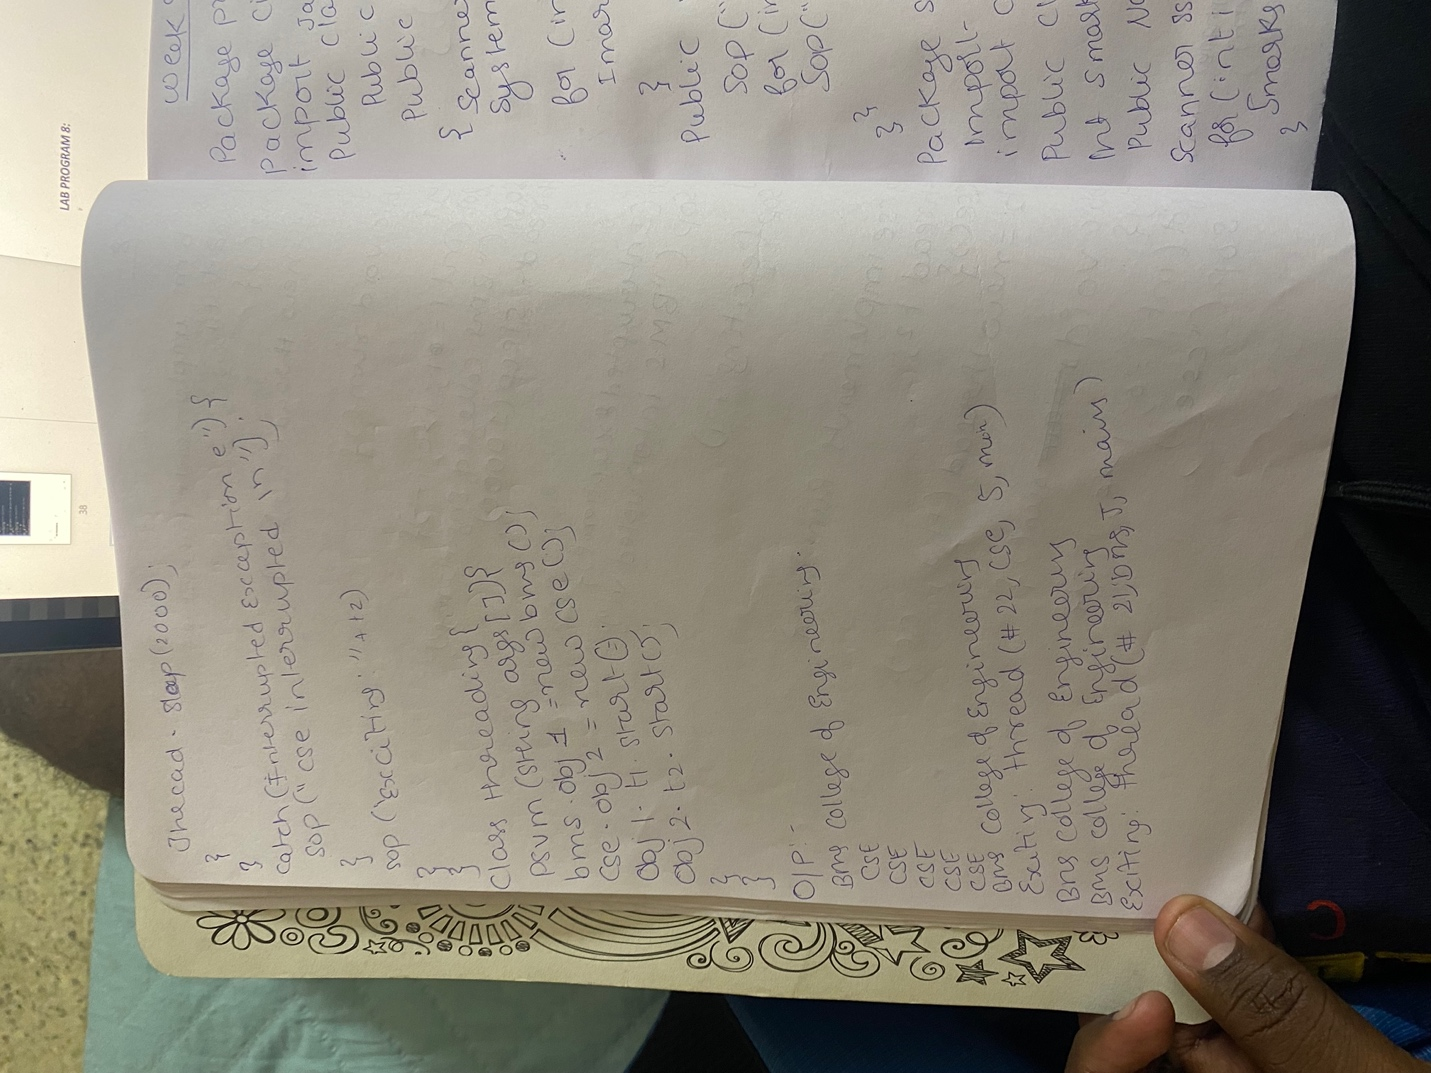 Thread.sleep(2000);
}
}
catch(Interrupted Exception e"){
SOP("cse interrupted In");
}
SOP("Exciting: "+t2)
}
}
class threading{
psvm(String args[]){
bms.obj1 = new bms();
cse.obj2 = new cse();
obj1.t1.start();
obj2.t2.start();
}
}
O/P:-
BMS College of Engineering.
CSE
CSE
CSE
CSE
CSE
BMS College of Engineering
Exciting: thread(#22, CSE, 5, main)
BMS College of Engineering
BMS College of Engineering
Exciting: thread(# 21, bms, 5, main)
Week
Package
package
import
Public
Public
Public
{ Scanne
System
for (in
}
Public
SOP("
for (in
SOP("
}
}
Package
import
import
Public
Int Smark
Public
Scanner
for(int i
Smarks
}
LAB PROGRAM 8:
38